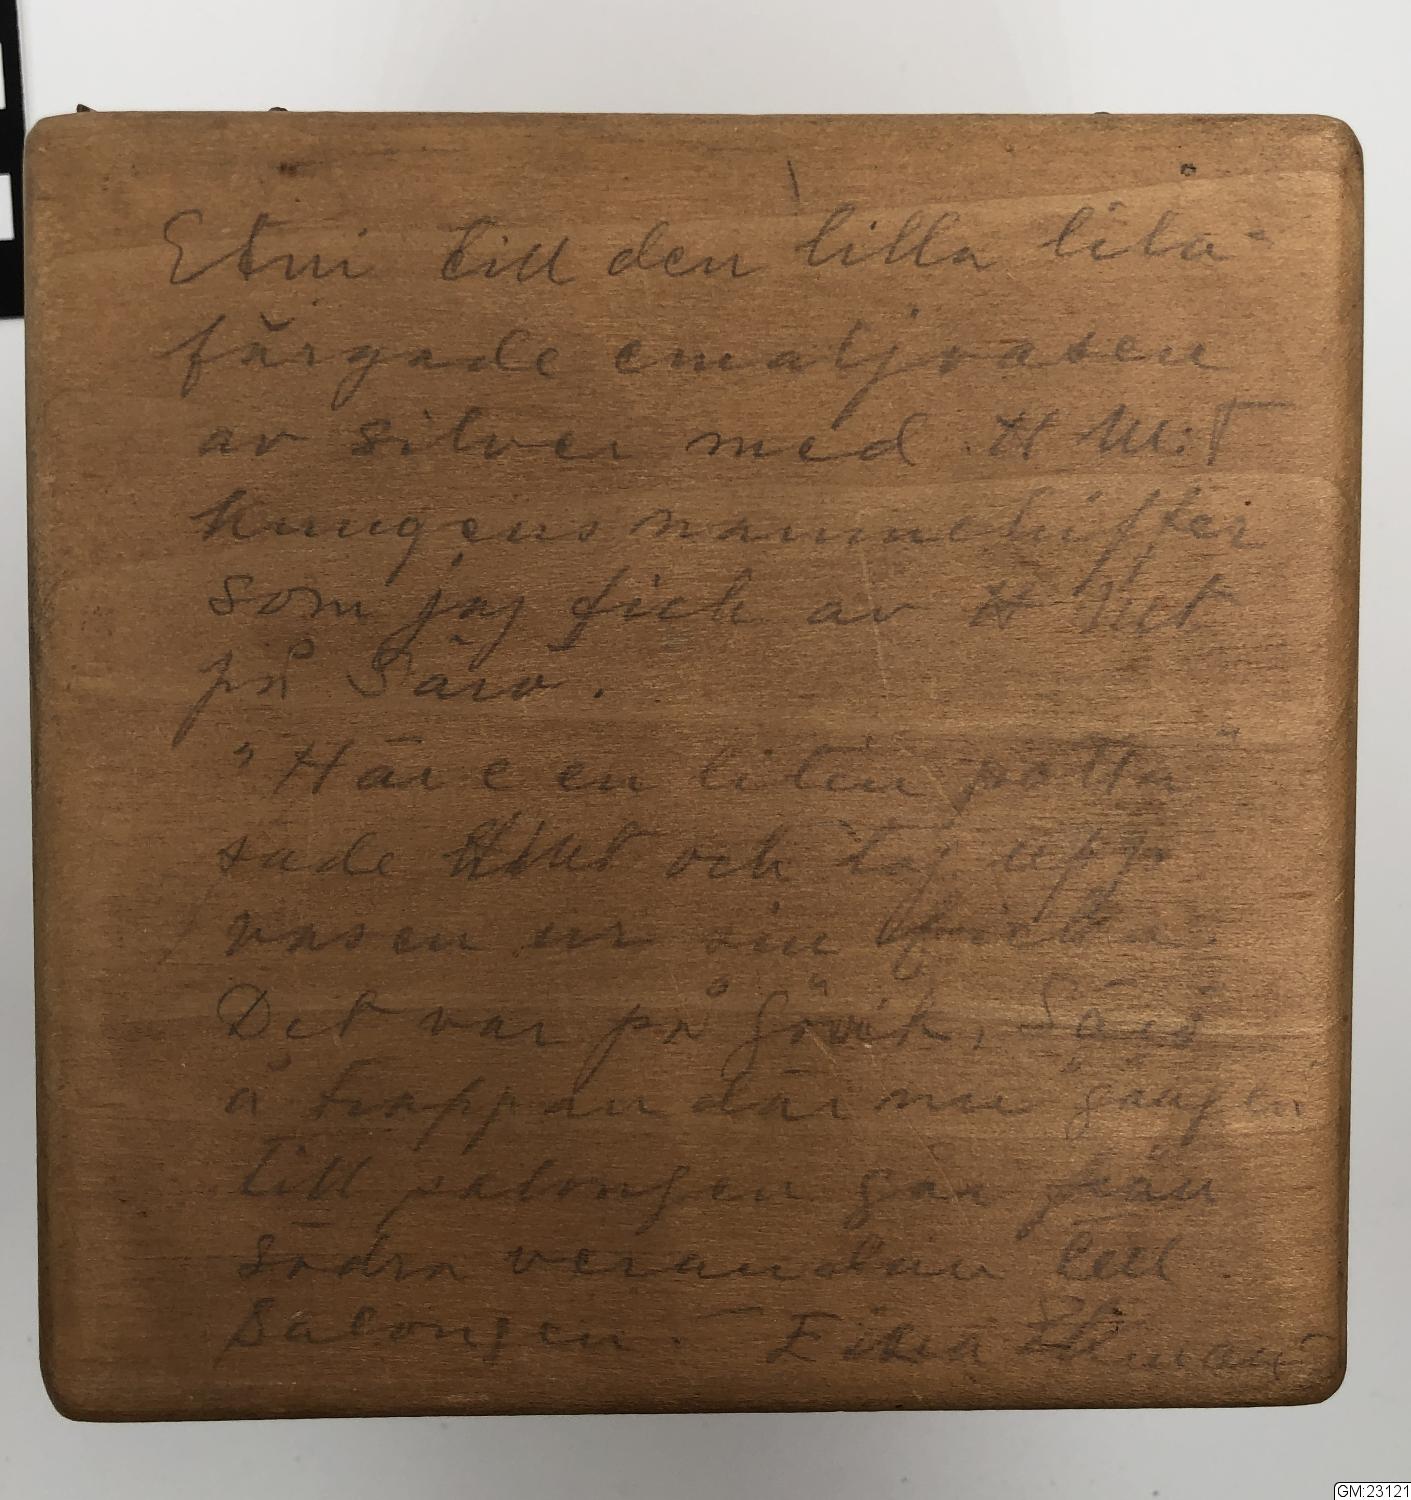 Etui till den lilla lila-
färgade emaljvasen
av silver med H M:t
kungens namnchiffer
som jag fick av H M:t
på Särö.
"Här e en liten potta"
sade H M:t och tog upp
vasen ur sin ficka.
Det var på Sövik, Särö
å trappan där nu gången
till salongen går från
södra verandan till
Salongen.
GM:23121